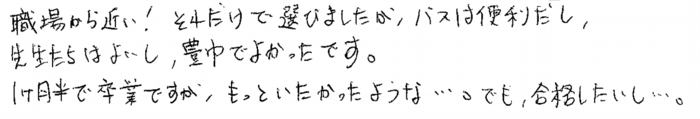 職場から近い！それだけで選びましたが、バスは便利だし、
先生たちはよいし、豊中でよかったです。
1ヶ月半で卒業ですが、もっといたかったような…。でも、合格したいし…。